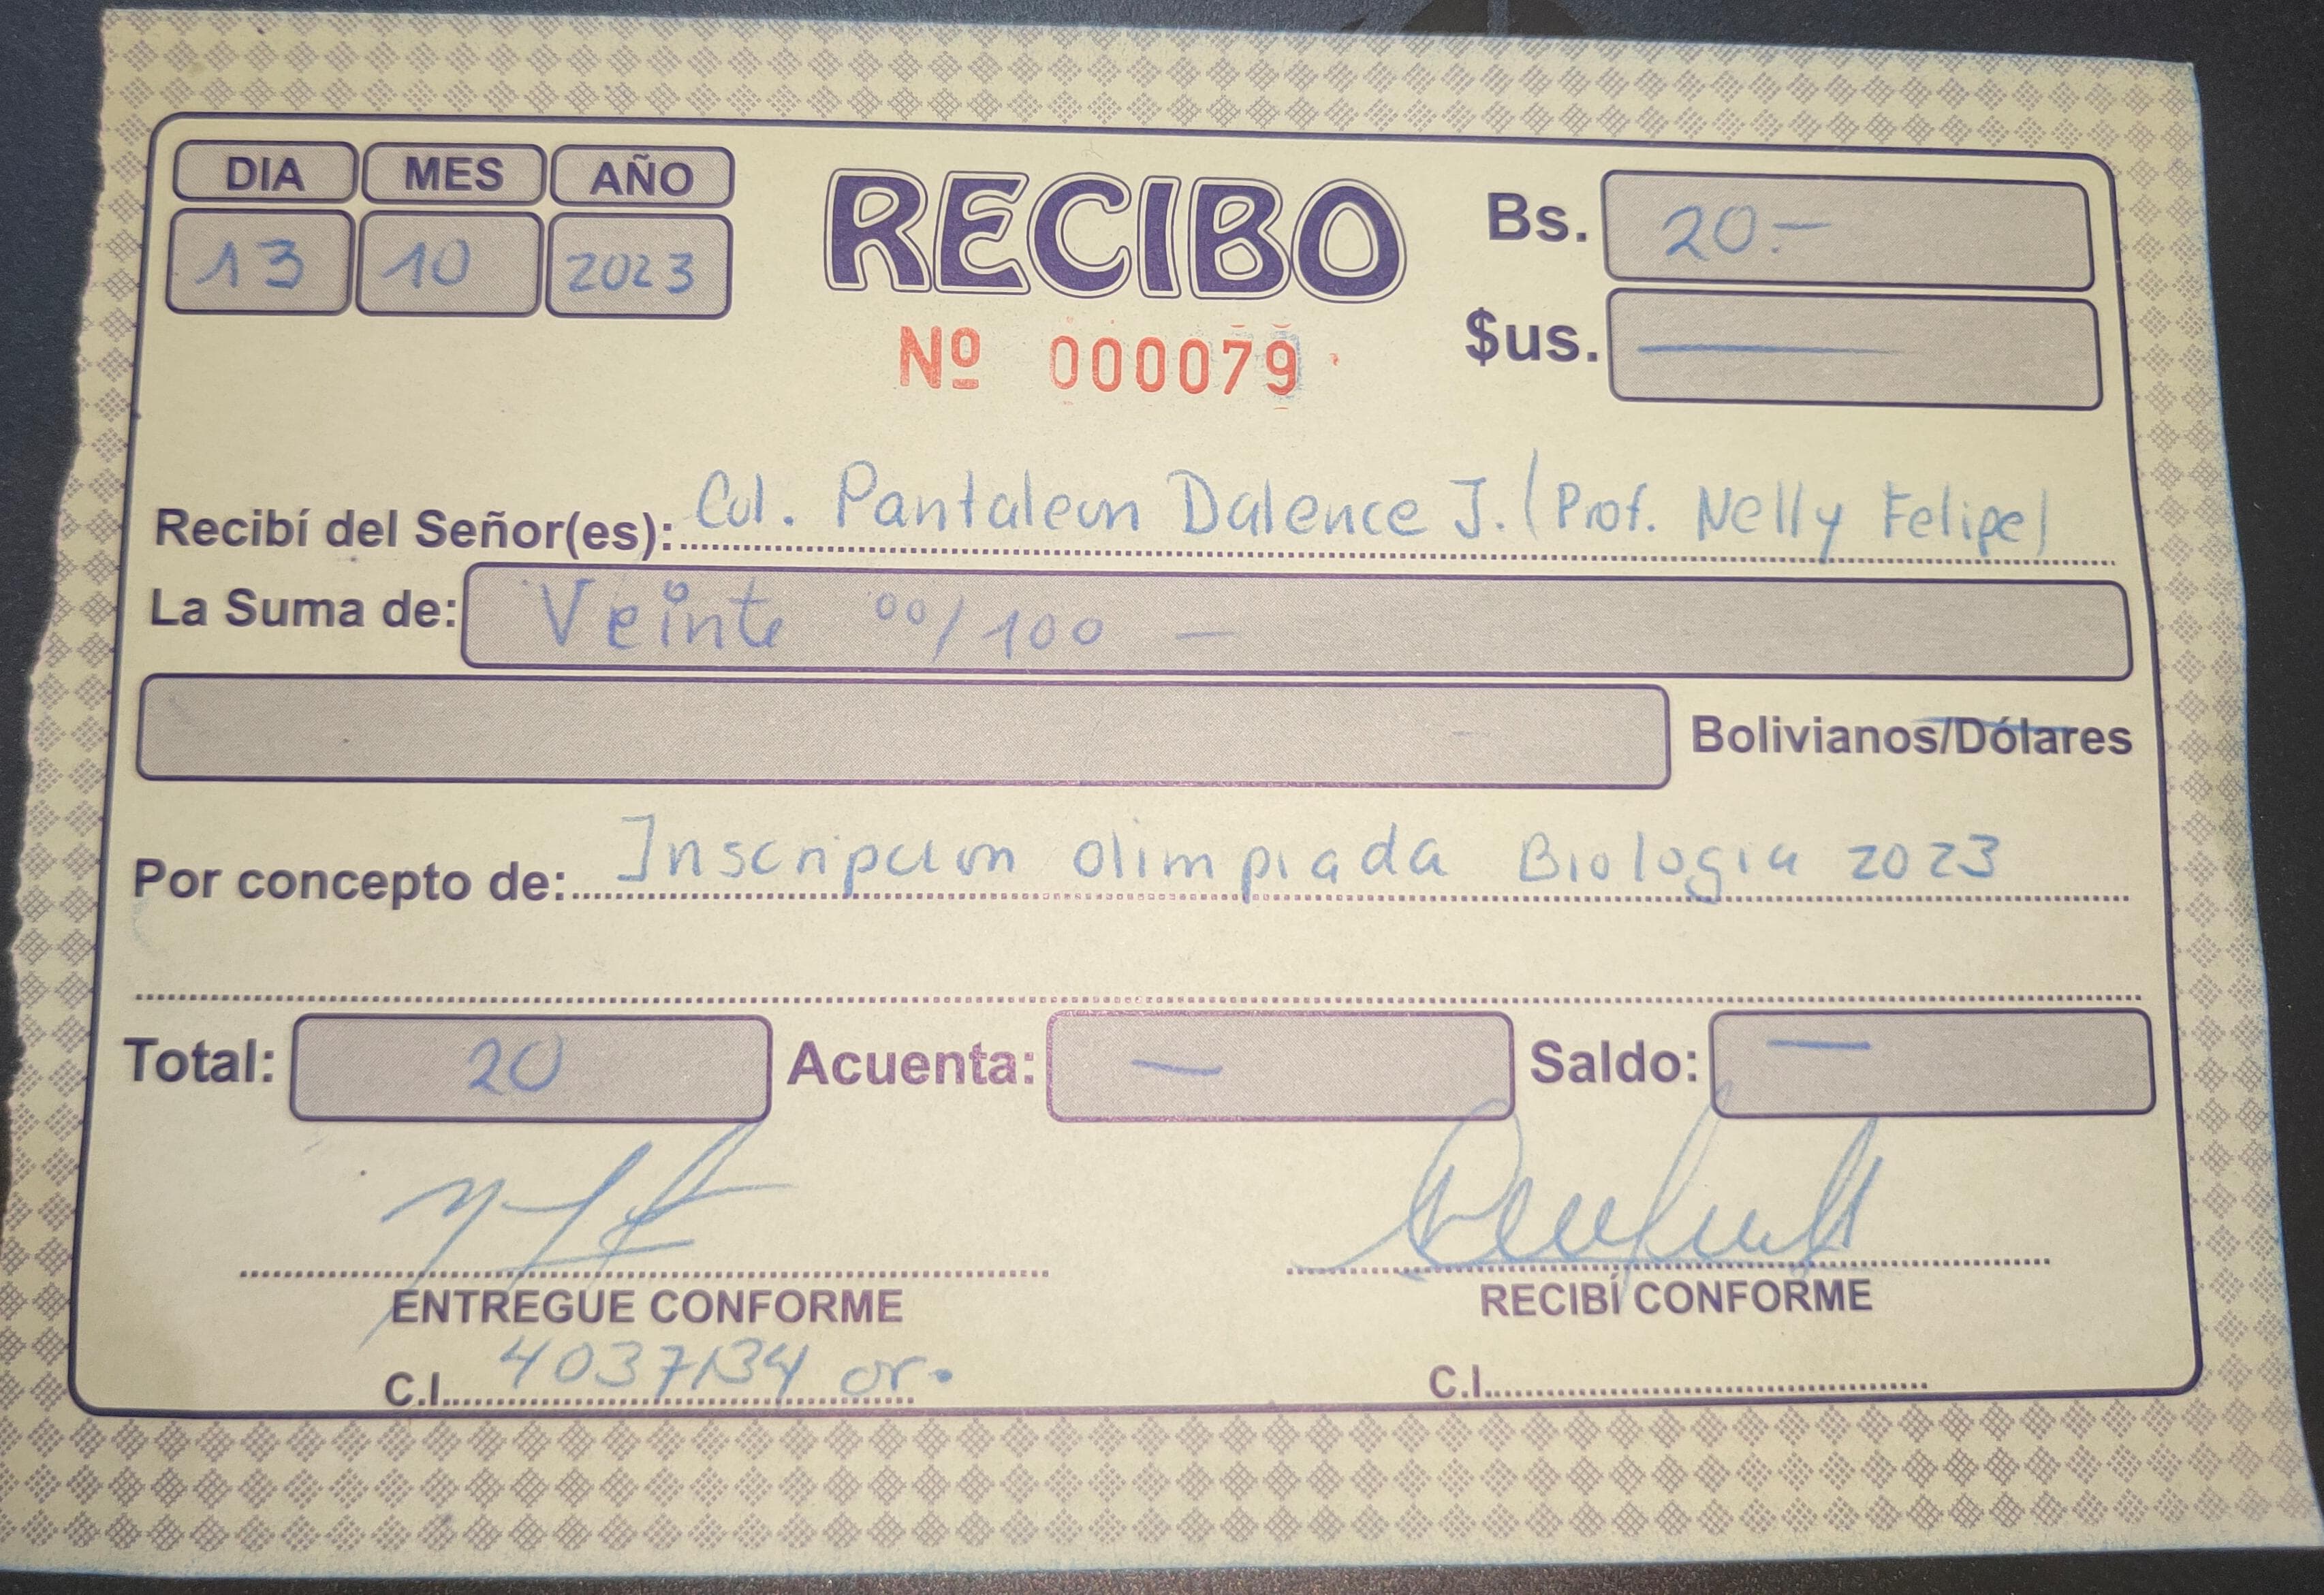 DIA MES AÑO
13 10 2023
RECIBO
Nº 000079
Bs. 20.-
$us. —
Recibí del Señor(es): Col. Pantaleon Dalence J. (Prof. Nelly Felipe)
La Suma de: Veinte 00/100 —
Bolivianos/Dólares
Por concepto de: Inscripcion olimpiada Biologia 2023
Total: 20 Acuenta: — Saldo: —
ENTREGUE CONFORME RECIBÍ CONFORME
C.I. 4037134 or. C.I.